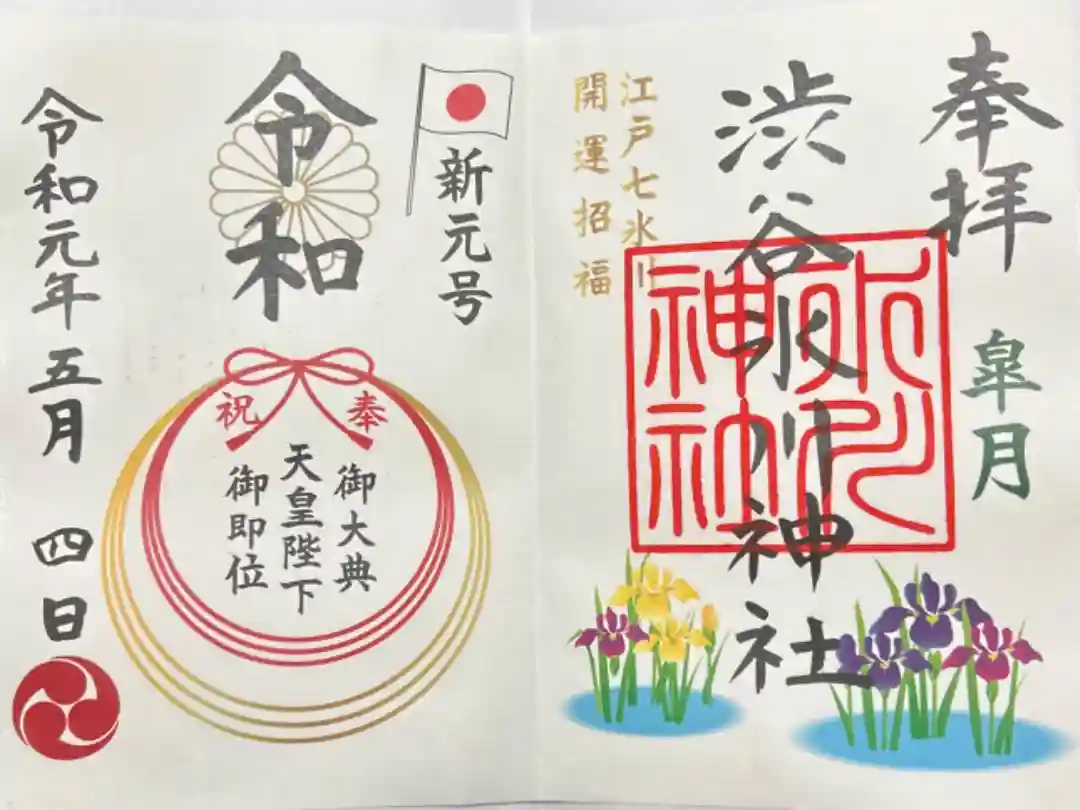 奉拝
皐月
渋谷氷川神社
江戸七氷川
開運招福
氷川
神社
新元号
令和
奉祝
御大典
天皇陛下
御即位
令和元年五月四日